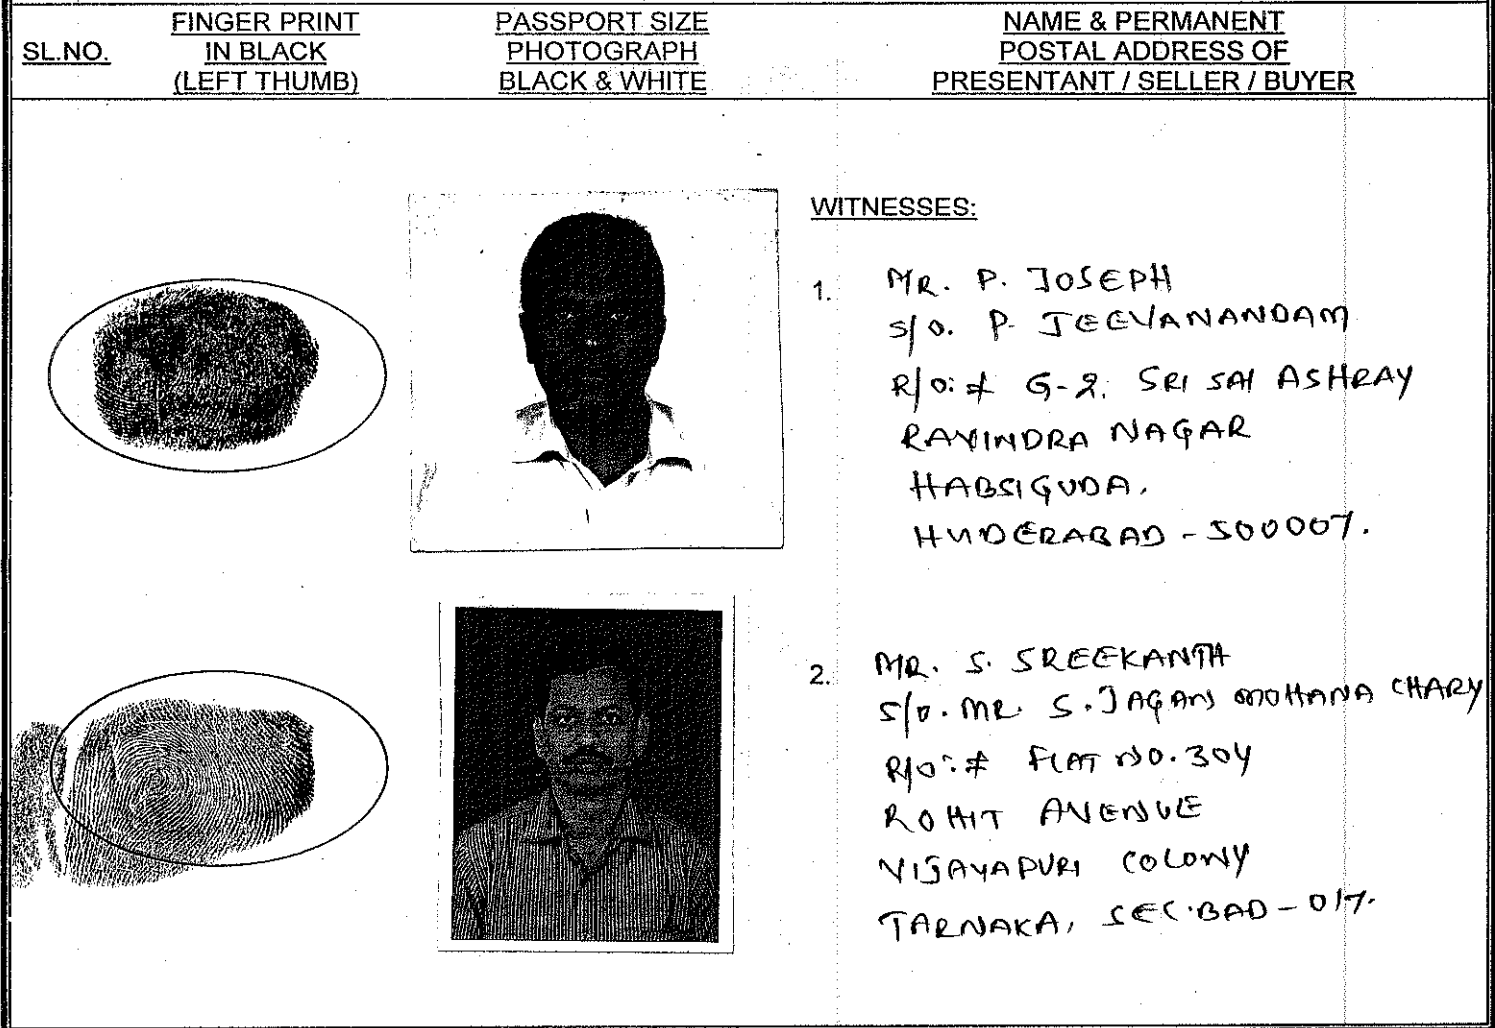 SL.NO.
FINGER PRINT
IN BLACK
(LEFT THUMB)
PASSPORT SIZE
PHOTOGRAPH
BLACK & WHITE
NAME & PERMANENT
POSTAL ADDRESS OF
PRESENTANT / SELLER / BUYER
WITNESSES:
1. MR. P. JOSEPH
S/O. P. JEEVANANDAM
R/O:# G-2, SRI SAI ASHRAY
RAVINDRA NAGAR
HABSIGUDA,
HYDERABAD - 500007.
2. MR. S. SREEKANTH
S/O. MR. S. JAGAN MOHANA CHARY
R/O:# FLAT NO. 304
ROHIT AVENUE
VIJAYAPURI COLONY
TARNAKA, SEC'BAD - 017.